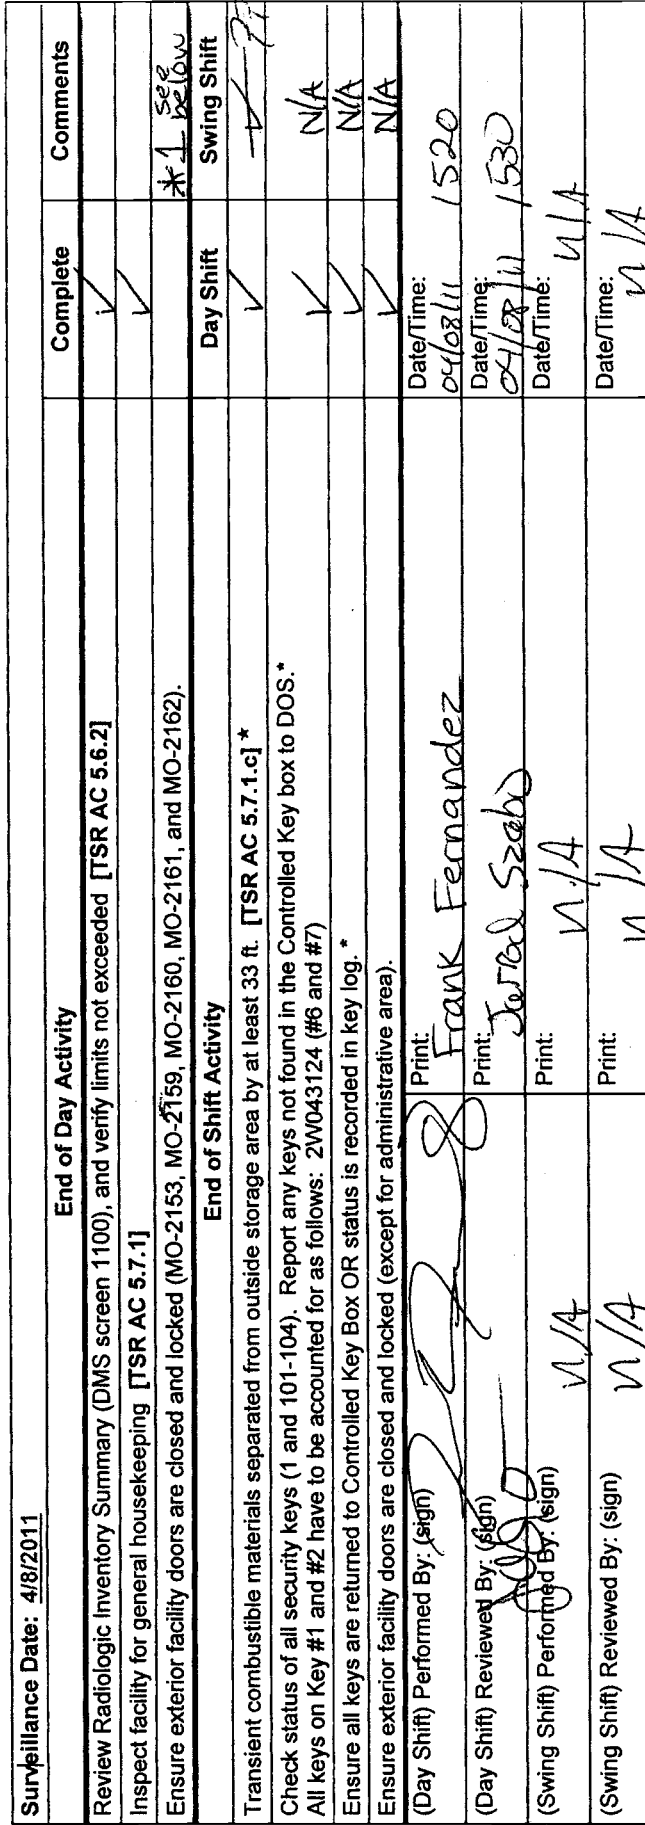 Surveillance Date: 4/8/2011
End of Day Activity Complete Comments
Review Radiologic Inventory Summary (DMS screen 1100), and verify limits not exceeded [TSR AC 5.6.2] ✓
Inspect facility for general housekeeping [TSR AC 5.7.1] ✓
Ensure exterior facility doors are closed and locked (MO-2153, MO-2159, MO-2160, MO-2161, and MO-2162). *1 see below
End of Shift Activity Day Shift Swing Shift
Transient combustible materials separated from outside storage area by at least 33 ft. [TSR AC 5.7.1.c] * ✓
Check status of all security keys (1 and 101-104). Report any keys not found in the Controlled Key box to DOS.*
All keys on Key #1 and #2 have to be accounted for as follows: 2W043124 (#6 and #7) ✓ N/A
Ensure all keys are returned to Controlled Key Box OR status is recorded in key log. * ✓ N/A
Ensure exterior facility doors are closed and locked (except for administrative area). ✓ N/A
(Day Shift) Performed By: (sign) Print: Frank Fernandez Date/Time: 04/08/11 1520
(Day Shift) Reviewed By: (sign) Print: Szabo Date/Time: 04/08/11 1530
(Swing Shift) Performed By: (sign) n/A Print: n/A Date/Time: n/A
(Swing Shift) Reviewed By: (sign) n/A Print: n/A Date/Time: n/A